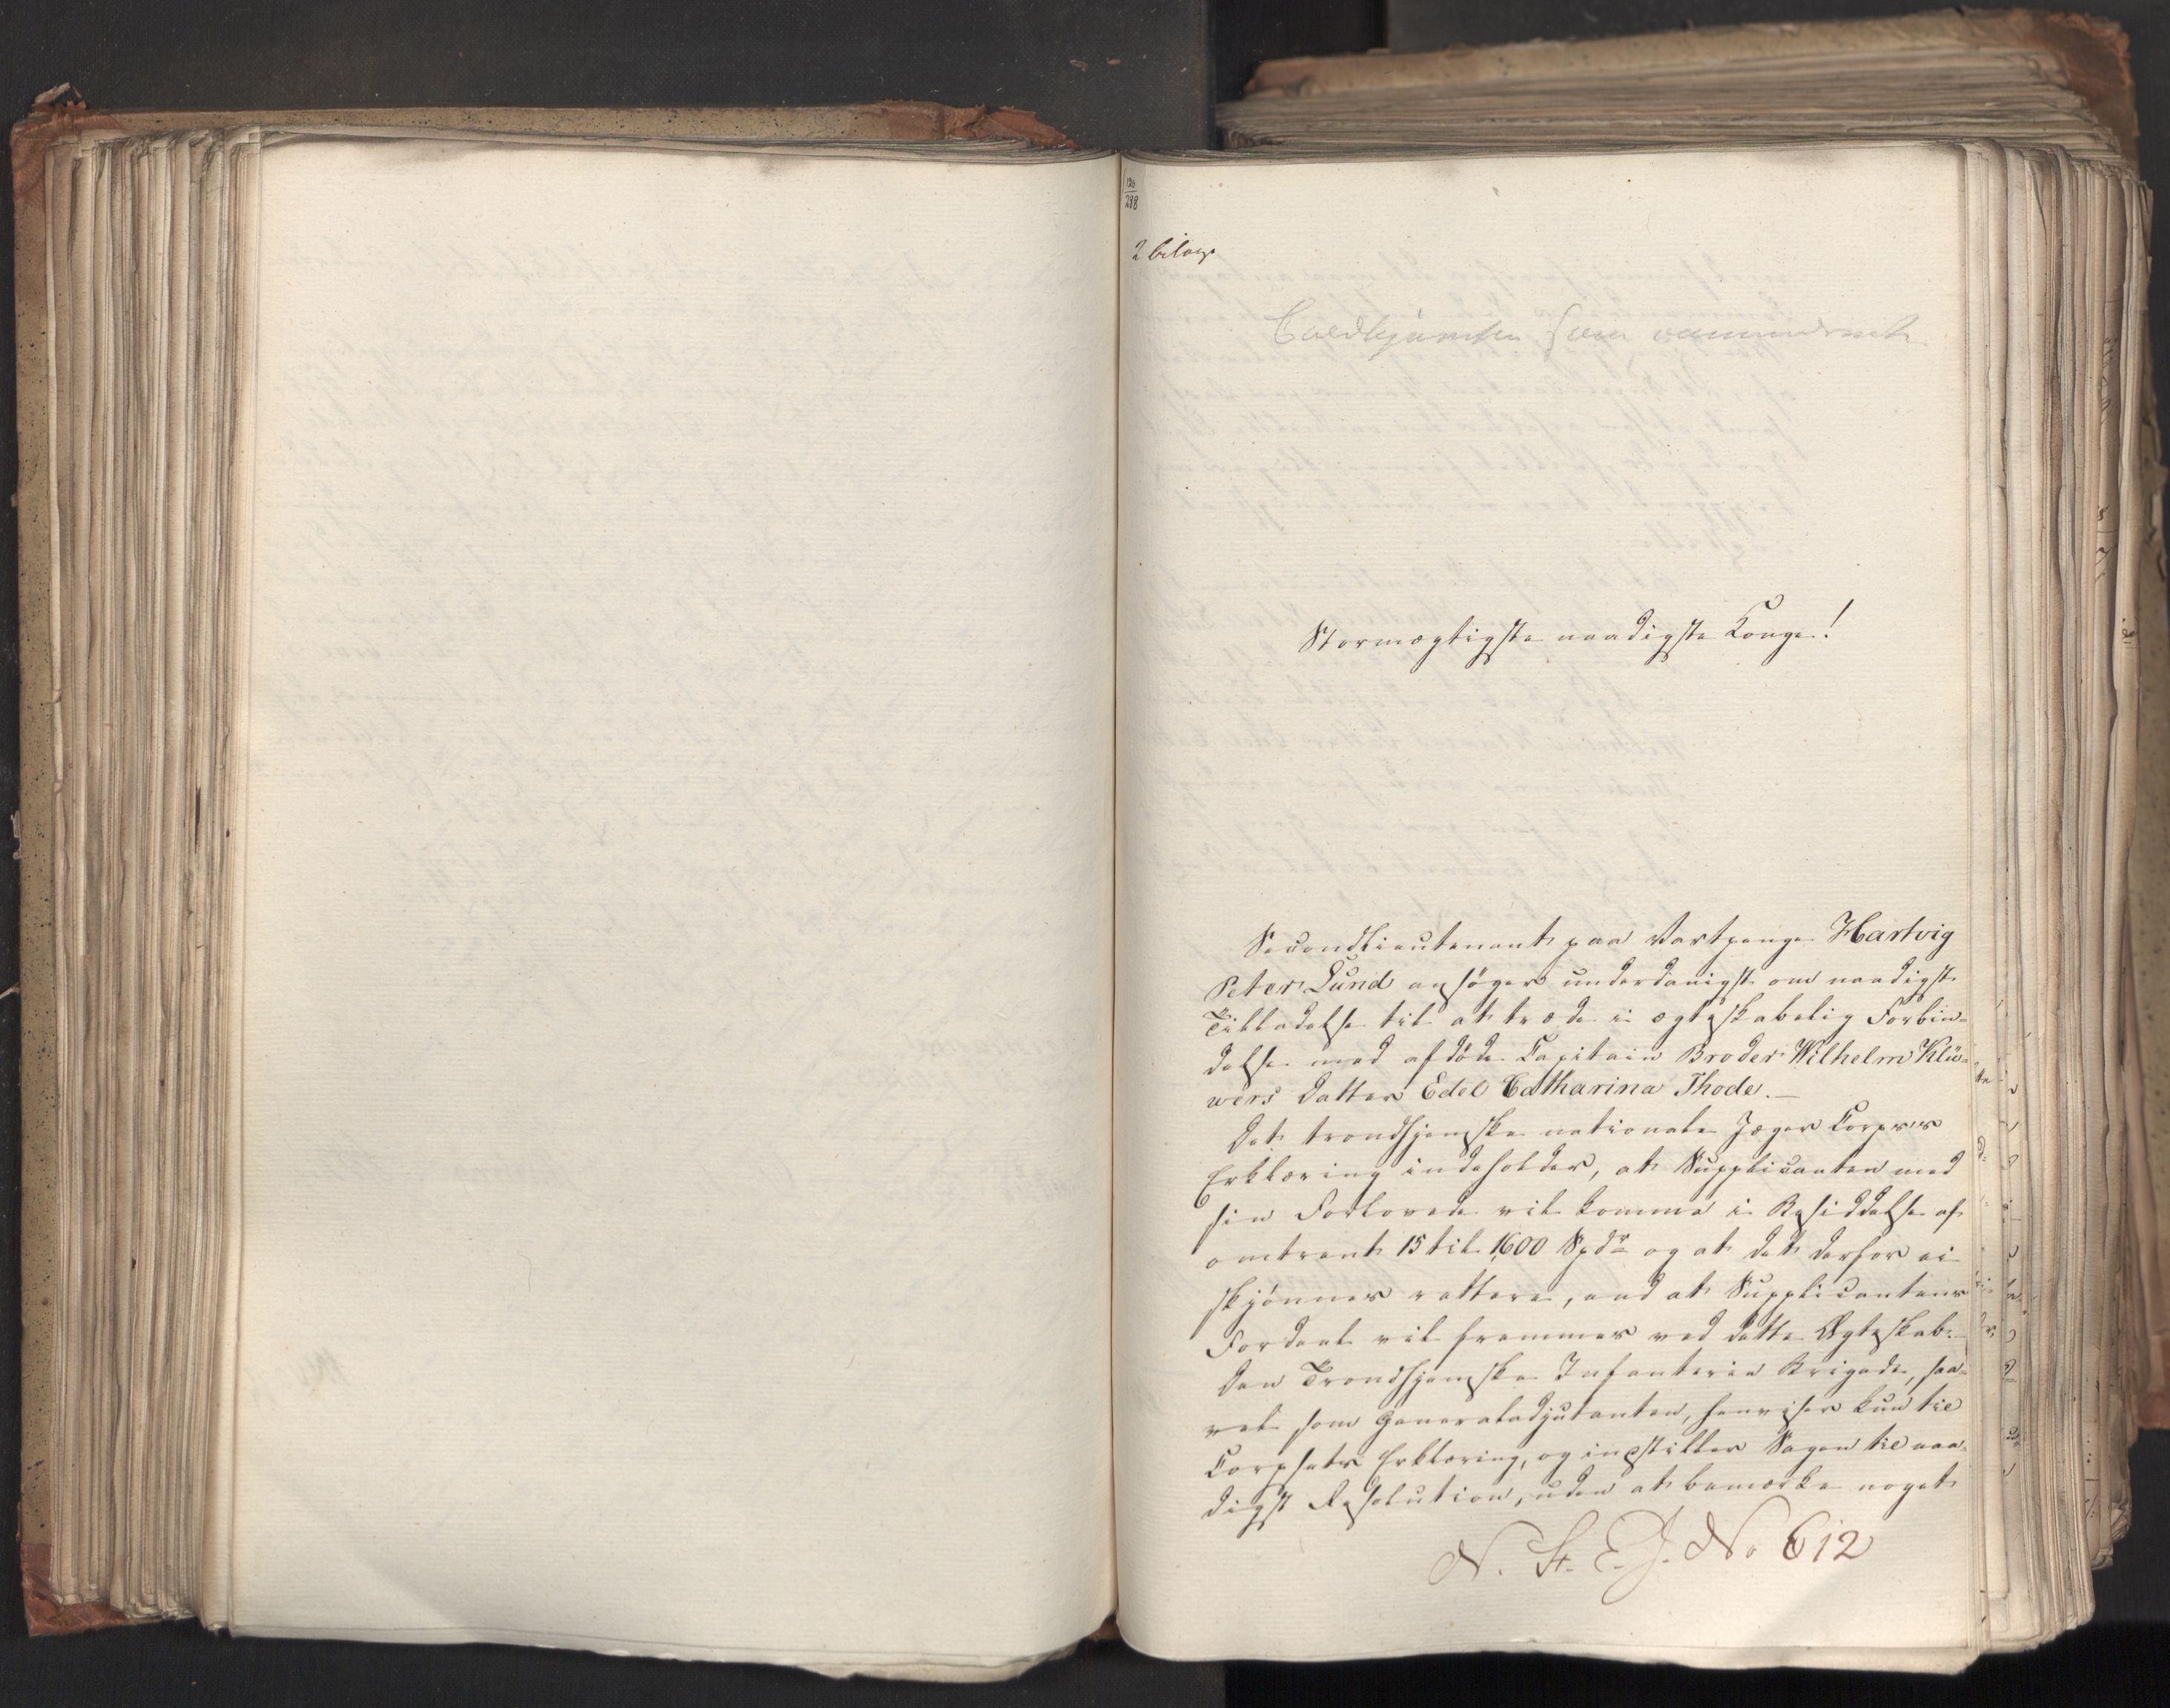 120
298
2 bilag
Stormægtigste naadigste Konge!
Secondlieutenant paa Vartpenge Hartvig
Peter Lund ansøger underdanigst om naadigst
Tilladelse til at træde i ægteskabelig Forbin-
delse med afdøde Capitain Broder Wilhelm Klü-
wers Datter Edel Catharina Thode.
Det trondhjemske nationale Jæger Corps's
Erklæring indeholder, at Supplicanten med
sin Forlovede vil komme i Besiddelse af
omtrent 15 til 1600 Spdr og at det derfor ei
skjønnes rettere, end at Supplicantens
Fordeel vil fremmes ved dette Ægteskab.
Den Trondhjemske Infanterie Brigade, saa-
vel som Generaladjutanten, henviser kun til
Corpsets Erklæring, og indstiller Sagen til naa-
digst Resolution, uden at bemærke noget
N. St. E. J. No 612